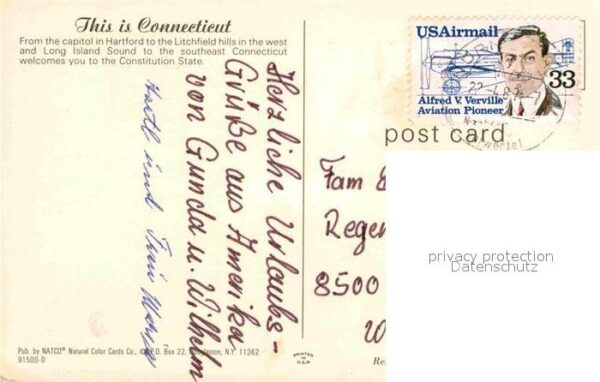 This is Connecticut
From the capitol in Hartford to the Litchfield hills in the west
and Long Island Sound to the southeast Connecticut
welcomes you to the Constitution State.
Herzliche Urlaubs-
Grüße aus Amerika
von Gunda u. Wilhelm
und
USAirmail
33
Alfred V. Verville
Aviation Pioneer
post card
Fam
Regen
8500
privacy protection
Datenschutz
Pub. by NATCO® Natural Color Cards Co., Box 22, N.Y. 11362
91500-D
PRINTED IN U.S.A.
Re